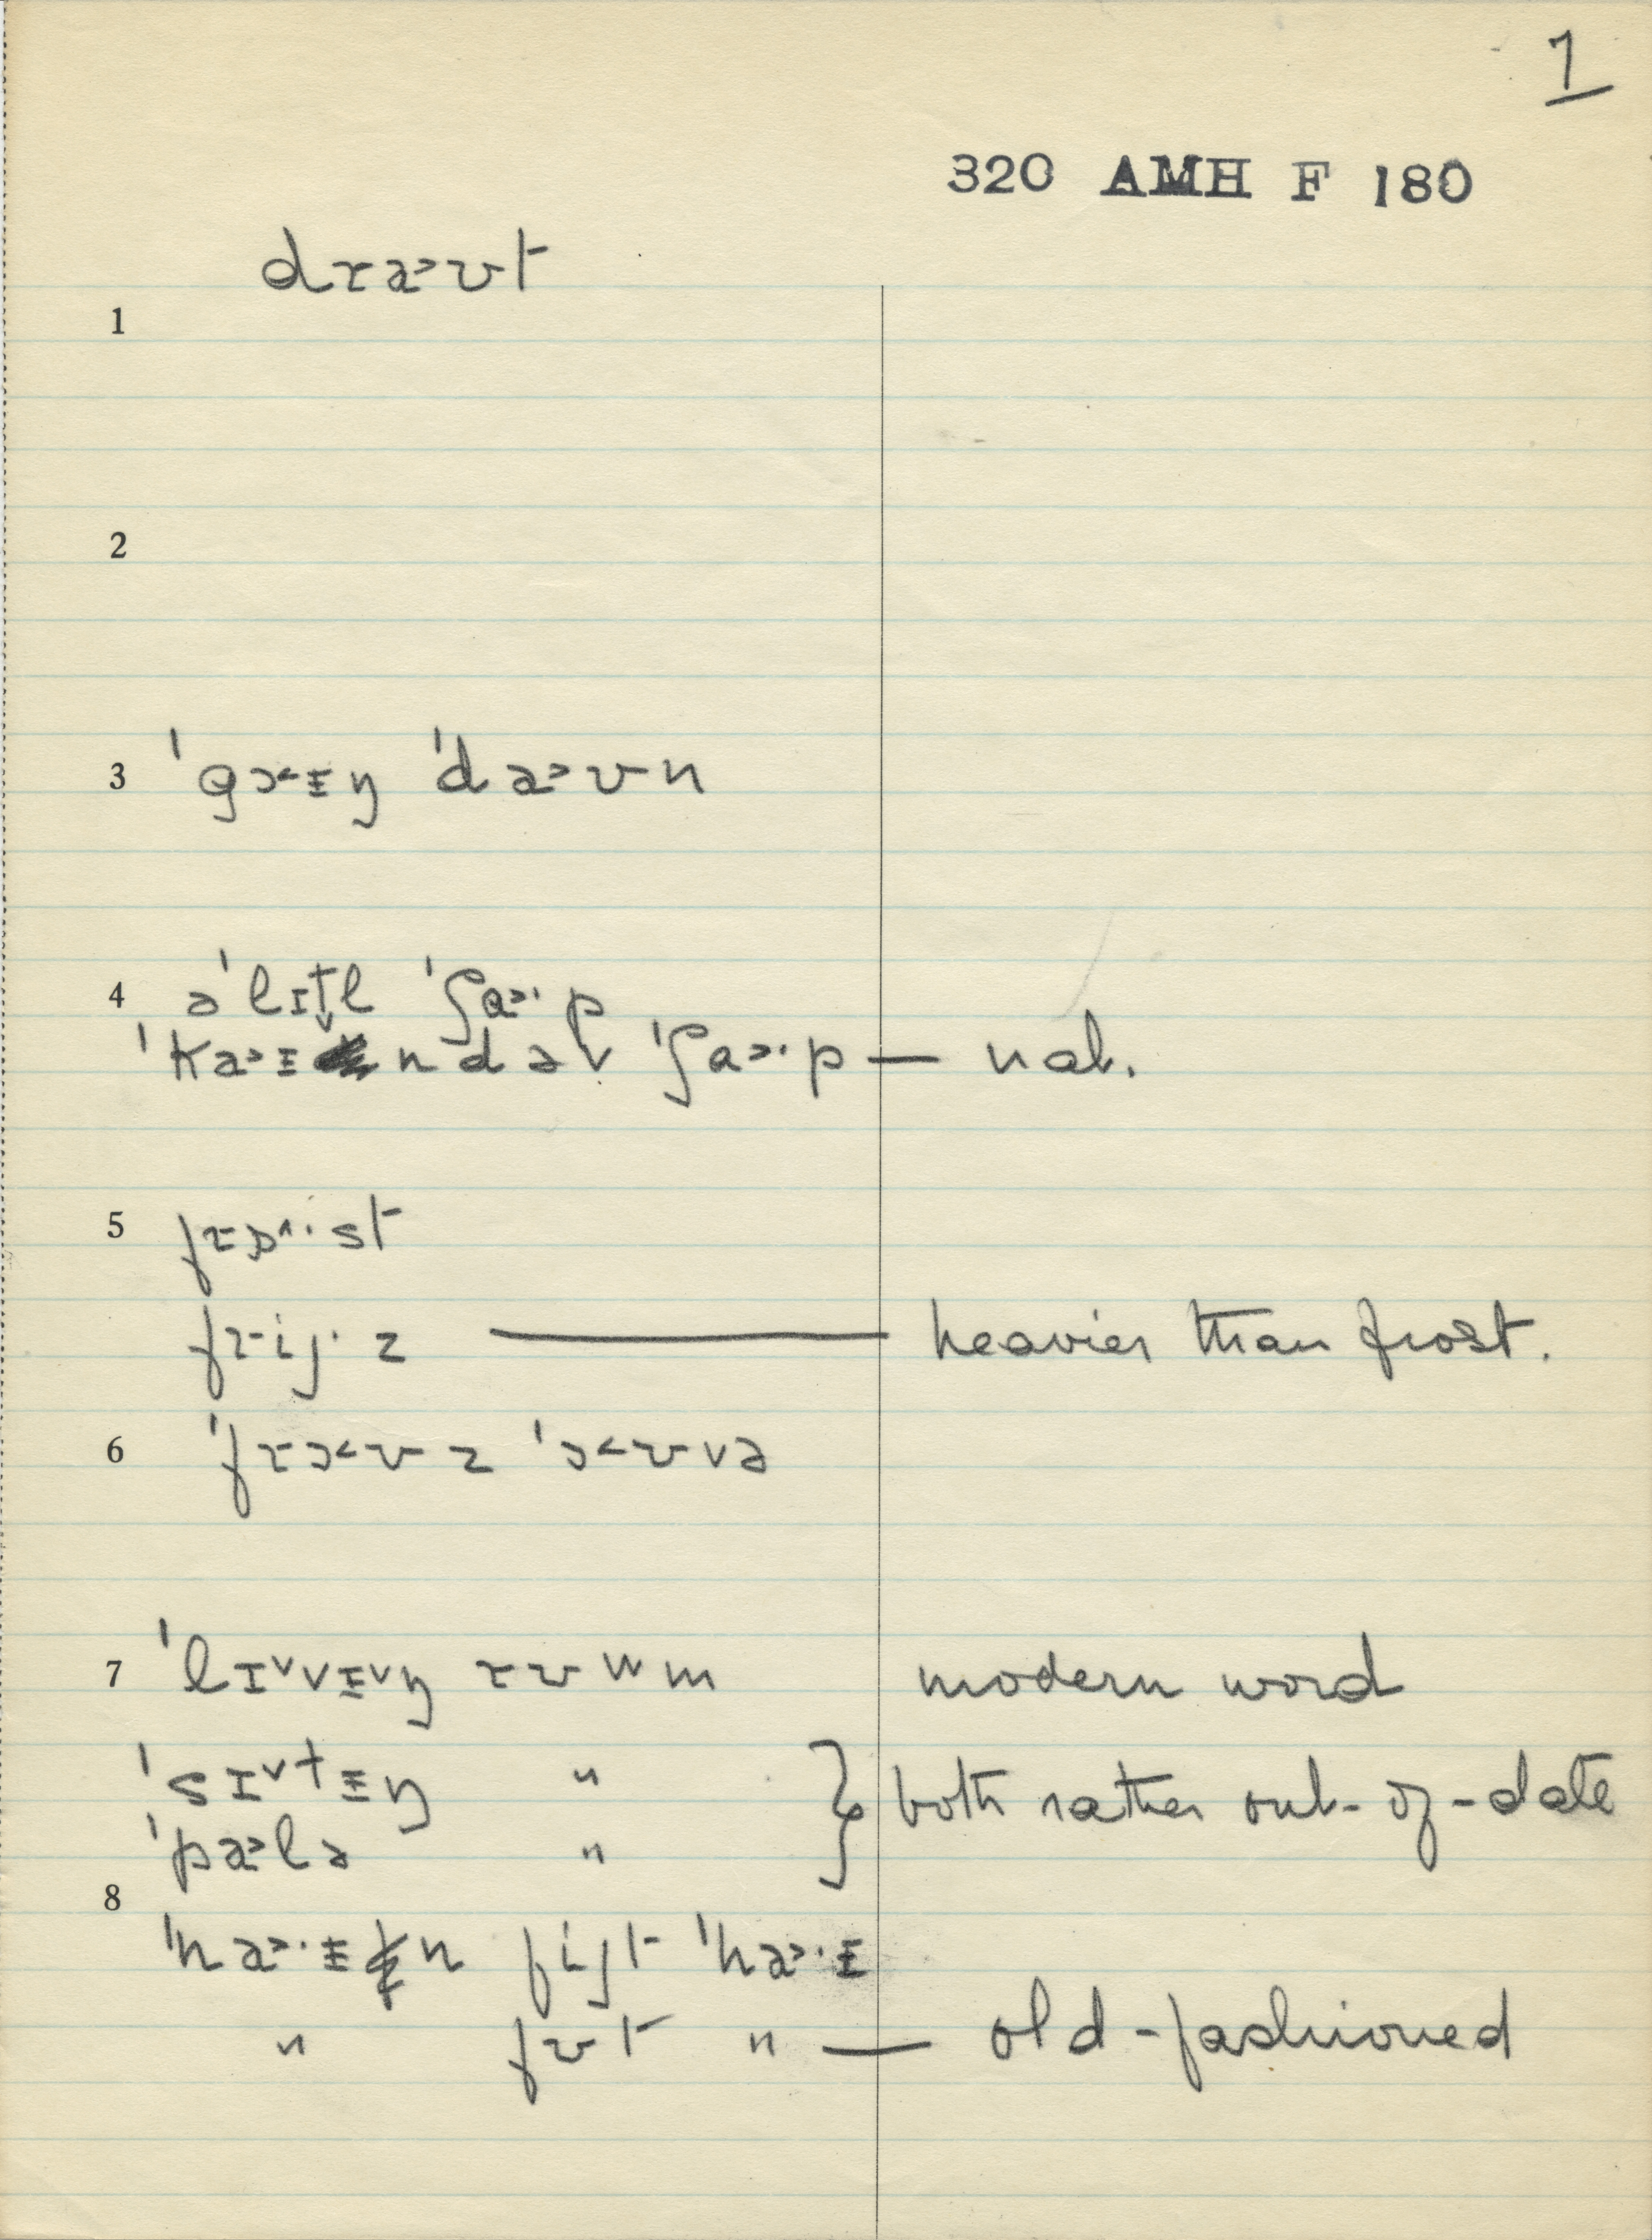 7
320 AMH F 180
dɾa˃ʊt
1
2
3 ˈgɔ˂ɪŋ ˈda˃ʊn
4 əˈlɪtl ˈʃɑ˃·p
ˈka˃ɪndəv ˈʃɑ˃·p — nat.
5 fɾɒ^·st
fɾij·z — heavier than frost.
6 ˈfɾɔ˂ʊz ˈɔ˂ʊvə
7 ˈlɪ˅vɪ˅ŋ ɾʊwm modern word
ˈsɪ˅tɪŋ " } both rather out-of-date
ˈpa˃lə "
8
ˈna˃·ɪn fijt ˈha˃·ɪ
" fʊt " — old-fashioned